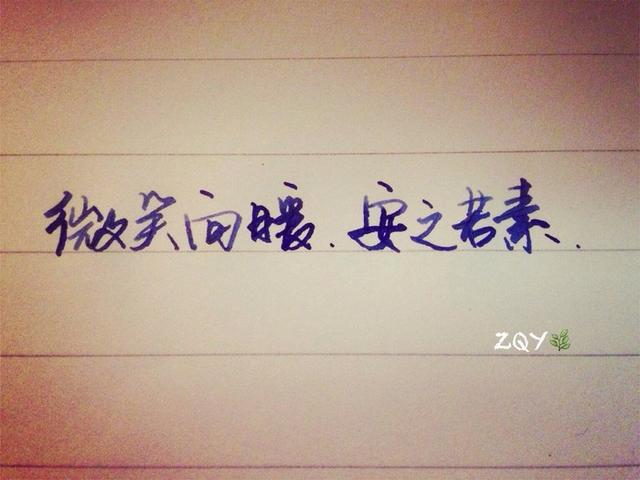 微笑向暖.安之若素.
ZQY